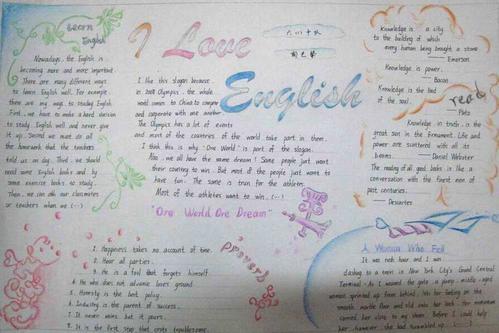 I Love
English
Learn
English
Nowadays, the English is
becoming more and more important.
There are many different ways
to learn English well. For example,
there are my ways to studing English.
First, we have to make a hard decision
to study English well and never give
it up. Second we must do all
the homework that the teachers
told us on day. Third, we should
need some English books and by
some exercise books to study.
Then, we can ask our classmates
or teachers when we (...)
I like this slogan because
in 2008 Olympics, the whole
world comes to China to compete
and cooperate with one another.
The Olympics has a lot of events
and most of the countries of the world take part in them.
I think this is why "One World" is part of the slogan.
Also, we all have the same dream! Some people just want
their country to win. But most of the people just want to
have fun. The same is true for the athletes.
Most of the athletes want to win, (...)
"One World One Dream"
Knowledge is a city,
to the building of which
every human being brought a stone
—— Emerson
Knowledge is power.
—— Bacon
Knowledge is the food
of the soul.
—— Plato
read
Knowledge, in truth, is the
great sun in the firmament. Life and
power are scattered with all its
beams. —— Daniel Webster
The reading of all good books is like a
conversation with the finest men of
past centuries.
—— Descartes
proverb
1. Happiness takes no account of time.
2. Hear all parties.
3. He is a fool that forgets himself.
4. He who does not advance loses ground.
5. Honesty is the best policy.
6. Industry is the parent of success.
7. It never rains but it pours.
8. It is the first step that costs troublesome.
A Woman Who Fell
It was rush hour and I was
dashing to a train in New York City's Grand Central
Terminal. As I neared the gate, a plump, middle-aged
woman sprinted up from behind, lost her footing on the
smooth marble floor and slid onto her back. Her momentum
carried her close to my shoes. Before I could help
her, however, she had scrambled up. (...)